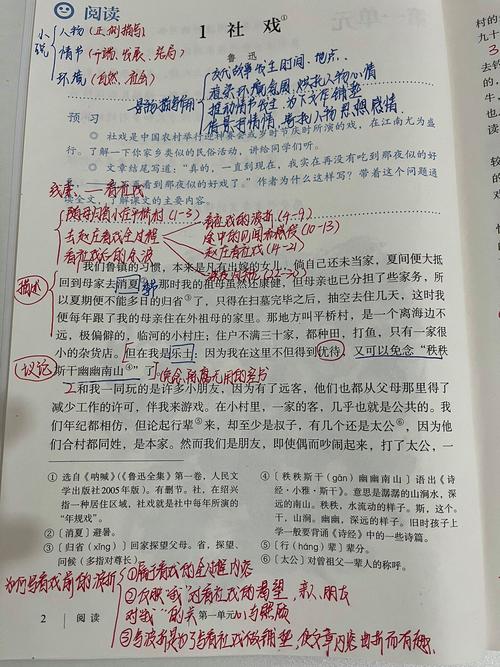 阅读
第一单元
小说
人物（正、侧描写）
情节（开端、发展、结局）
环境（自然、社会）
1 社戏①
鲁迅
景物描写作用
交代故事发生时间、地点
渲染环境氛围，烘托人物心情
推动情节发展，为下文作铺垫
借景抒情，寄托人物思想感情
预 习
◎ 社戏是中国农村举行迎神赛会或岁时节庆时所演的戏，在江南尤为盛
行。了解一下你家乡类似的民俗活动，讲给同学们听。
◎ 文章结尾写道：“真的，一直到现在，我实在再没有吃到那夜似的好
豆，——也不再看到那夜似的好戏了。”作者为什么这样写？带着这个问题通
读全文，了解课文的主要内容。
线索：——看社戏
随母归省小住平桥村（1-3）
去赵庄看戏全过程
看社戏后的余波
看社戏前的波折（4-9）
途中的（10-13）
赵庄看社戏（14-21）
我们鲁镇的习惯，本来是凡有出嫁的女儿，倘自己还未当家，夏间便大抵
回到母家去消夏②。那时我的祖母虽然还康健，但母亲也已分担了些家务，所
以夏期便不能多日的归省③了，只得在扫墓完毕之后，抽空去住几天，这时我
便每年跟了我的母亲住在外祖母的家里。那地方叫平桥村，是一个离海边不
远，极偏僻的，临河的小村庄；住户不满三十家，都种田，打鱼，只有一家很
小的杂货店。但在我是乐土：因为我在这里不但得到优待，又可以免念“秩秩
斯干幽幽南山④”了。
描述
议论
和我一同玩的是许多小朋友，因为有了远客，他们也都从父母那里得了
减少工作的许可，伴我来游戏。在小村里，一家的客，几乎也就是公共的。我
们年纪都相仿，但论起行辈⑤来，却至少是叔子，有几个还是太公⑥，因为他
们合村都同姓，是本家。然而我们是朋友，即使偶而吵闹起来，打了太公，一
① 选自《呐喊》（《鲁迅全集》第一卷，人民文
学出版社2005年版）。有删节。社，在绍兴
指一种居住区域，社戏就是社中每年所演的
“年规戏”。
② 〔消夏〕避暑。
③ 〔归省（xǐng）〕回家探望父母。省，探望、
问候（多指对尊长）。
④ 〔秩秩斯干（gān）幽幽南山〕语出《诗
经·小雅·斯干》。意思是潺潺的山涧水，深
远的南山。秩秩，水流动的样子。斯，这个。
干，山涧。幽幽，深远的样子。旧时孩子上
学一般要背诵《诗经》中的一些诗篇。
⑤ 〔行（háng）辈〕辈分。
⑥ 〔太公〕对曾祖父一辈人的称呼。
为何写看戏前的波折
②反映“我”对看社戏的渴望，亲人、朋友
对“我”的关心与照顾
2 阅读 第一单元